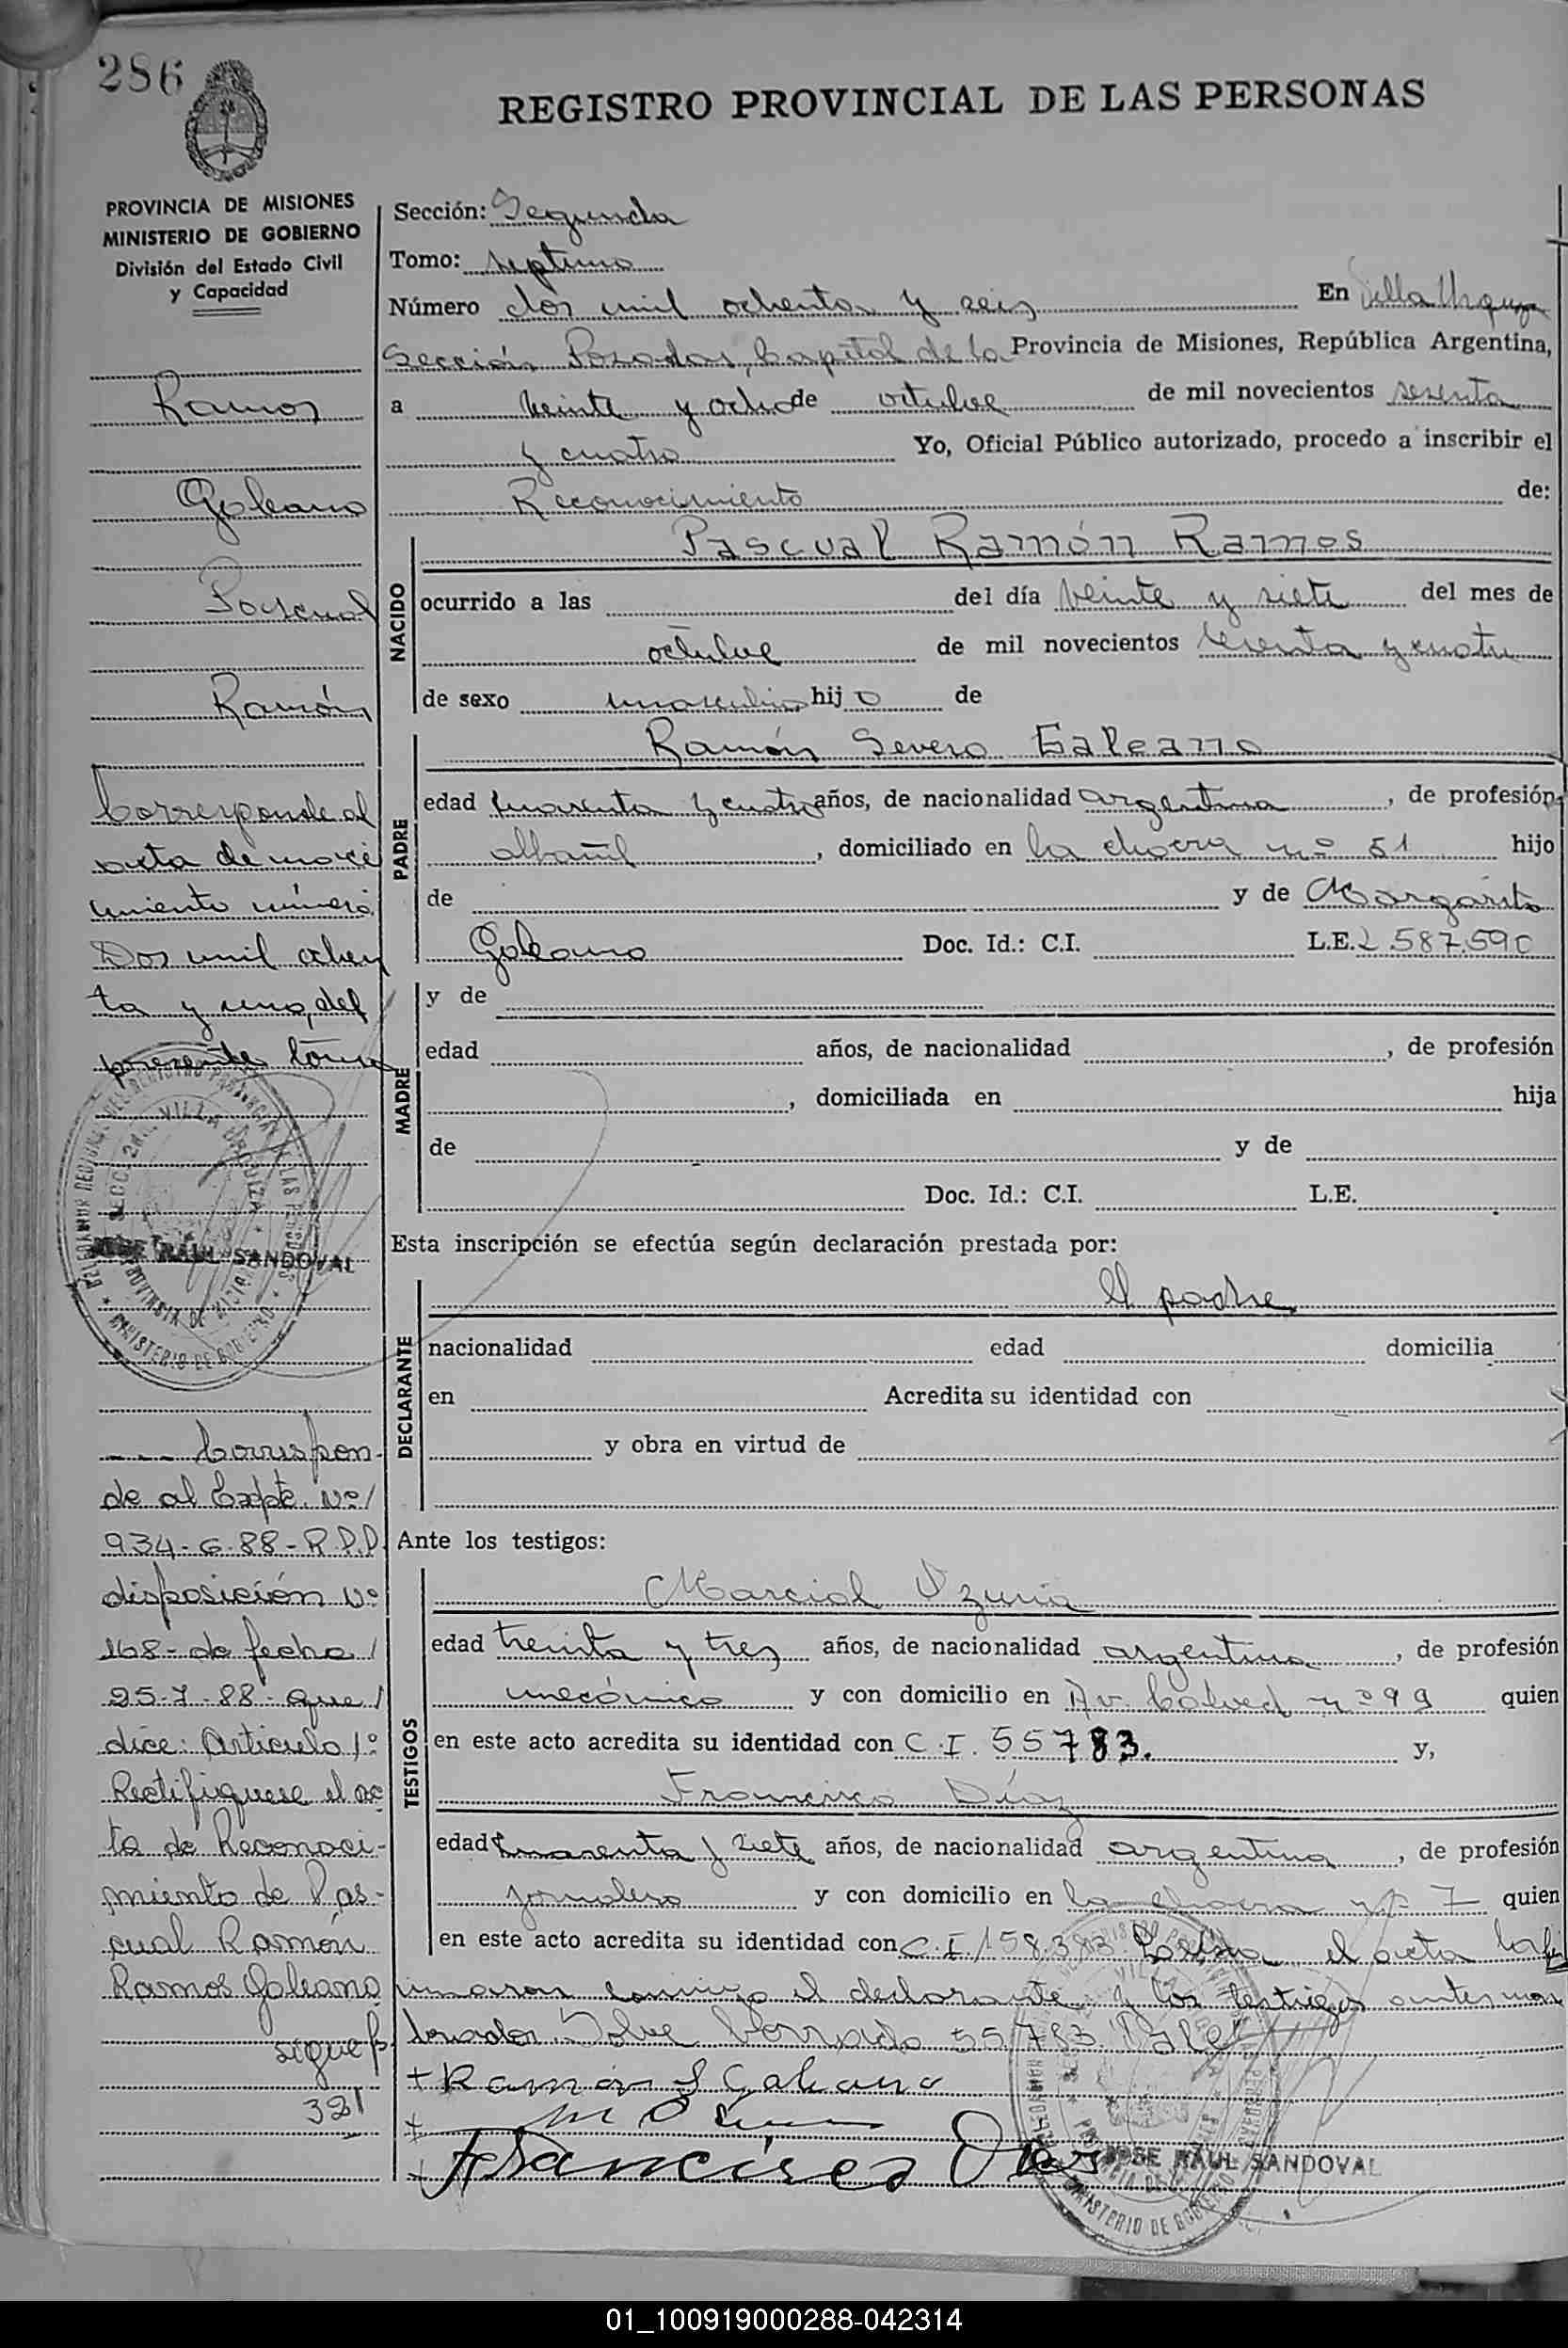 286
REGISTRO PROVINCIAL DE LAS PERSONAS
PROVINCIA DE MISIONES
MINISTERIO DE GOBIERNO
División del Estado Civil
y Capacidad
Ramos
Galeano
Pascual
Ramón
Corresponde al
acta de naci
miento número
Dos mil ochen
ta y uno, del
presente tomo
JOSE RAUL SANDOVAL
--- Correspon-
de al Expte. Nº/
934-G-88-R.P.P.
disposición Nº
168- de fecha/
25-7-88- que/
dice: Artículo 1º
Rectifiquese el ac
ta de Reconoci-
miento de Pas-
cual Ramón
Ramos Galeano
sigue f.
321
Sección: Segunda
Tomo: septimo
Número dos mil ochenta y seis En Villa Urquiza
Sección Posadas, Capital de la Provincia de Misiones, República Argentina,
a veinte y ocho de octubre de mil novecientos sesenta
y cuatro Yo, Oficial Público autorizado, procedo a inscribir el
Reconocimiento de:
NACIDO
Pascual Ramón Ramos
ocurrido a las del día veinte y siete del mes de
octubre de mil novecientos sesenta y cuatro
de sexo masculino hijo de
PADRE
Ramón Severo Galeano
edad cuarenta y cuatro años, de nacionalidad argentina, de profesión
albañil, domiciliado en la chacra nº 51 hijo
de y de Margarita
Galeano Doc. Id.: C.I. L.E. 2.587.590
MADRE
y de
edad años, de nacionalidad , de profesión
, domiciliada en hija
de y de
Doc. Id.: C.I. L.E.
Esta inscripción se efectúa según declaración prestada por:
DECLARANTE
El padre
nacionalidad edad domicilia
en Acredita su identidad con
y obra en virtud de
Ante los testigos:
TESTIGOS
Marcial Ozuna
edad treinta y tres años, de nacionalidad argentina, de profesión
mecánico y con domicilio en Av. nº 99 quien
en este acto acredita su identidad con C.I. 55783. y,
Francisco Díaz
edad cuarenta y siete años, de nacionalidad argentina, de profesión
jornalero y con domicilio en la chacra nº 7 quien
en este acto acredita su identidad con C.I. 158.393. el acta la fir
maron conmigo el declarante y los testigos antes men
cionados. Sobre borrado 55.783. Vale
+ Ramón S Galeano
Francisco Díaz
JOSE RAUL SANDOVAL
01_100919000288-042314